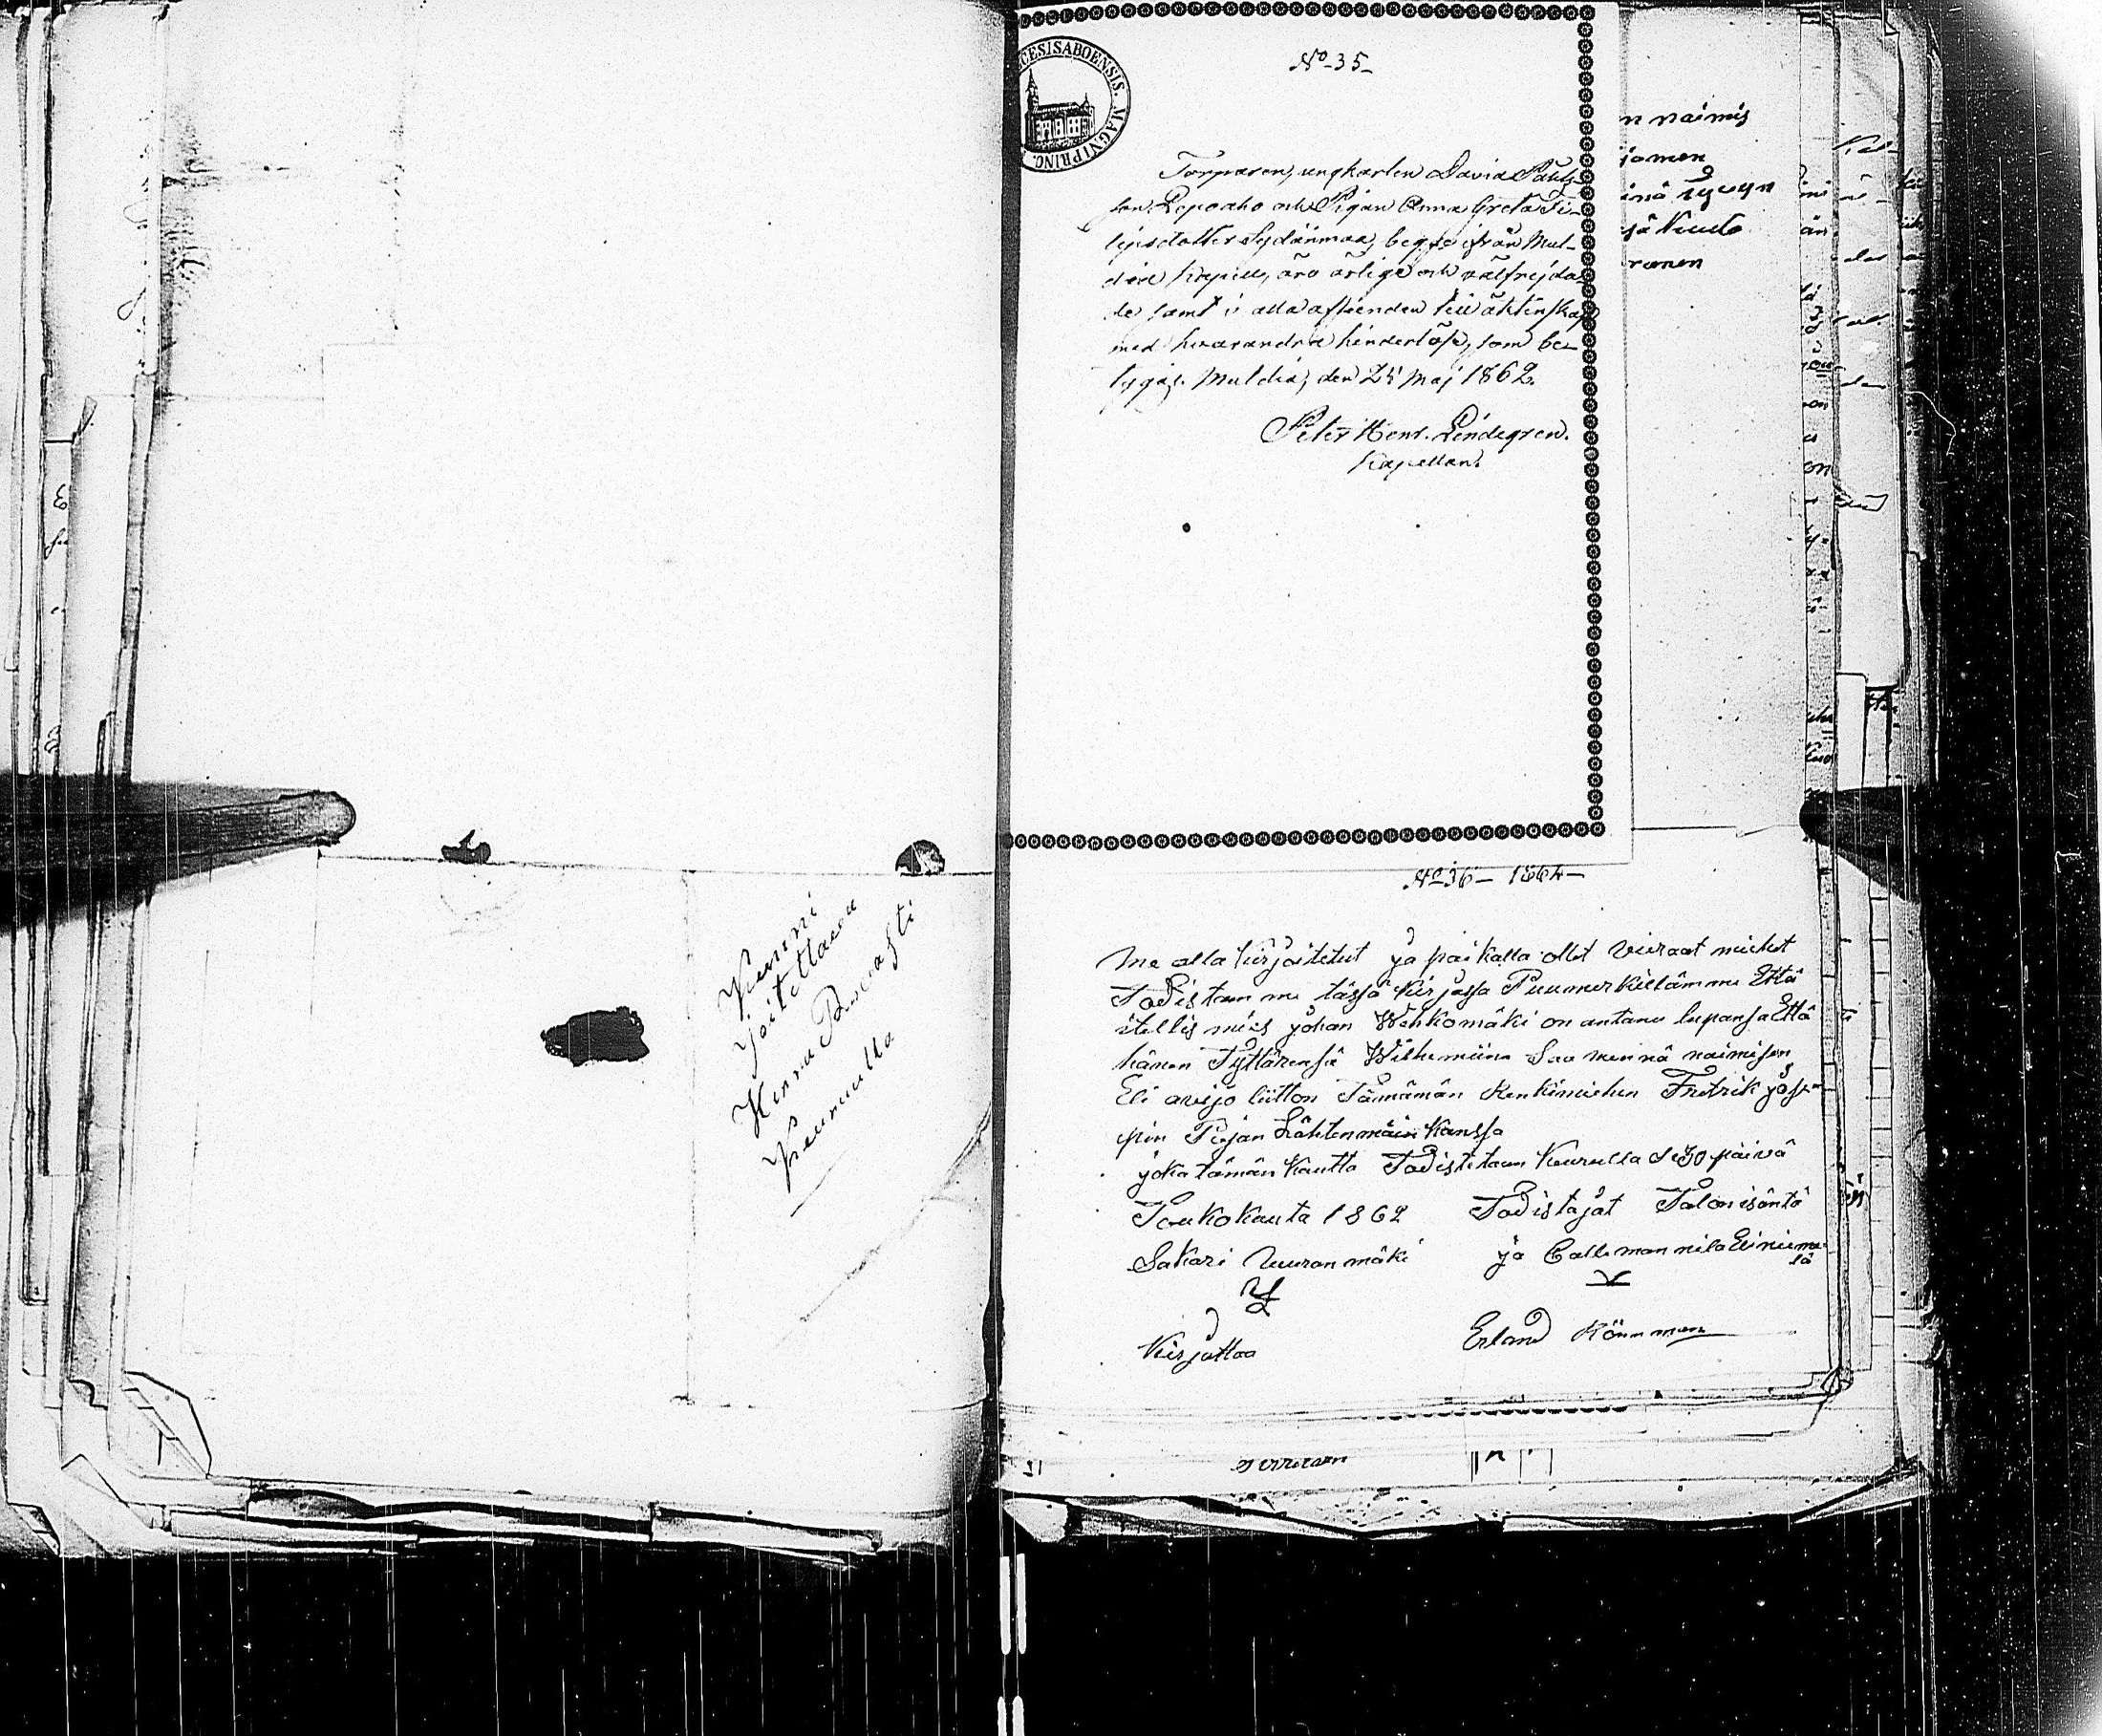 Kunni
joitettava
Herra Provasti
Keuruulla
CESISABOENSIS. MAGNI PRINC.
No 35
Torparen, ungkarlen David Pauls-
son Lepoaho och Pigan Anna Greta Fi-
lipsdotter Sydänmaa, begge ifrån Mul-
dia Kapell, äro ärlige och välfrejda-
de samt i alla afseenden till äktenskap
med hvarandra hinderlöse, som be-
tygas. Muldia, den 25 Maj 1862.
Peter Henr. Lindegren.
Kapellan.
n naimis
jomen
sjä Kuulo
ranen
No 36 - 1864 -
Me alla kirjoitetut ja paikalla ollet vieraat miehet
Todistam me tässä kirjassa Puumerkillämme Että
itellis mies johan Wehkomäki on antanu lupansa Että
hänen Tyttärensä Wilhemiina Saa mennä naimisen
Eli avijo liitton Tämämän Renkimiehen Fredrik jose-
pin Pojan Lähtenmäin kanssa
joka tämän kautta Todistetaan Keurulla se 30 päivä
Toukokauta 1862 Todistajat Talon isäntä
Sakari Vuoranmäki ja Callmannila Eliniema
lä
Kirjottaa Erland Rönnman